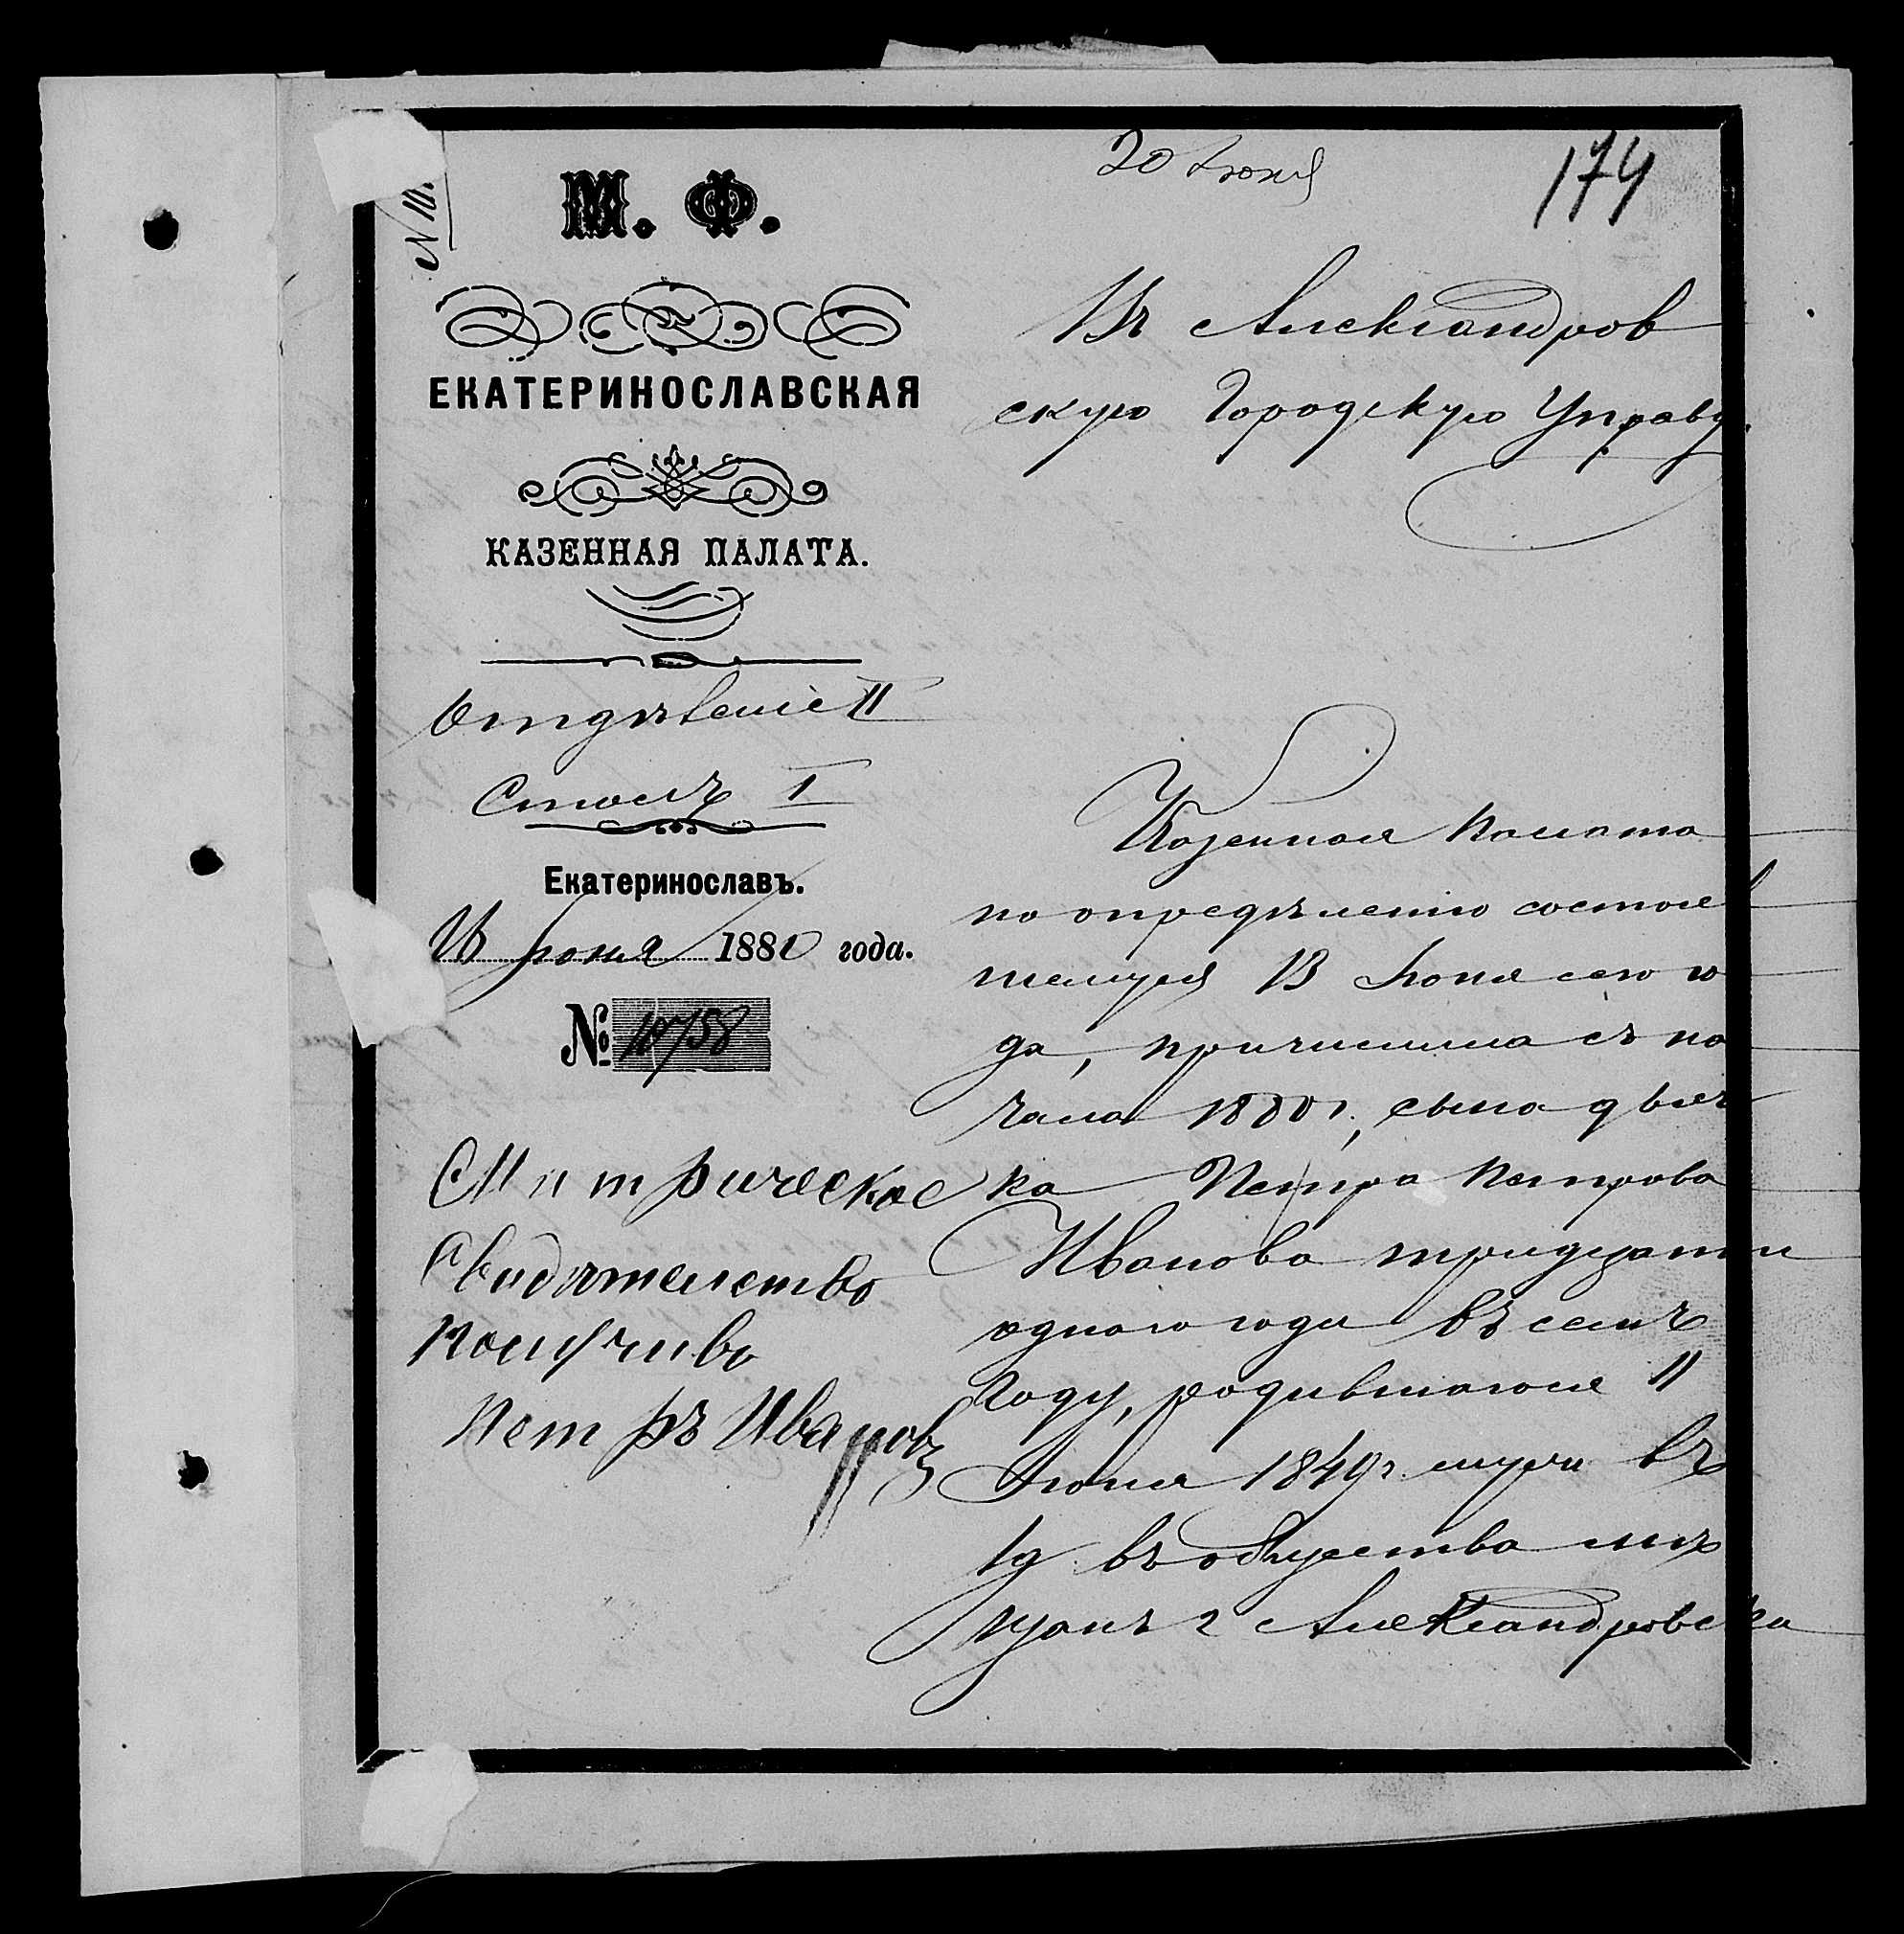 20 Июня
174
№ 10
М. Ф.
ЕКАТЕРИНОСЛАВСКАЯ
КАЗЕННАЯ ПАЛАТА.
Отдѣленіе II
Столъ I
Екатеринославъ.
Июня 1880 года.
№ 10758
Митрическое
Свидѣтелство
Получивъ
Петръ Ивановъ
Въ Александров
скую Городскую Управу.
Казенная Палата
по опредѣленію состояв
шемуся 13 Июня сего го
да, причислила съ на
чала 1880 г., сына дьяч
ка Петра Петрова
Иванова тридцати
одного года въ семъ
году, родившагося 11
Июня 1849 г. въ
въ общества мѣ
щанъ г Александровска